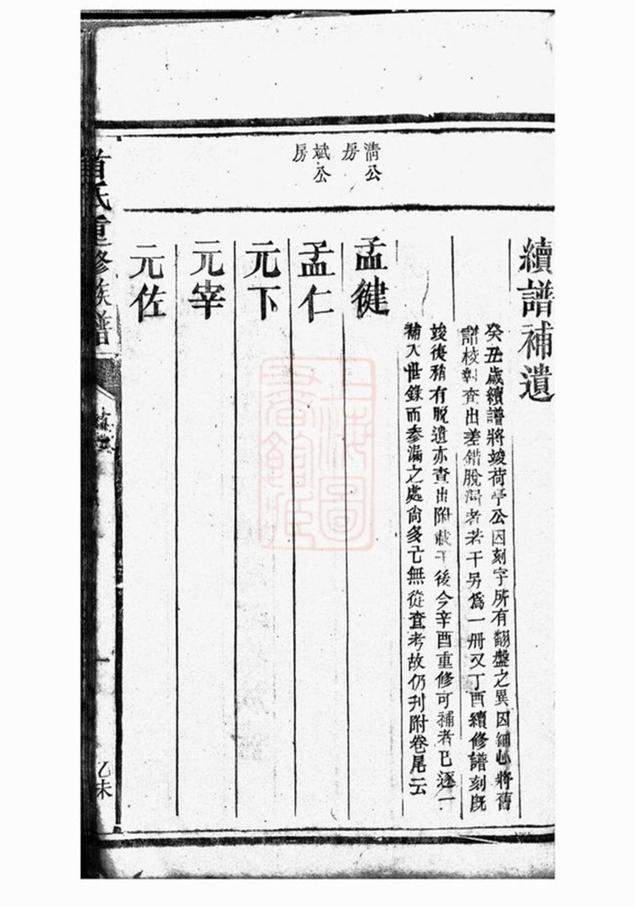 續譜補遺
癸丑歲續譜將竣荷亭公因刻字所有翻盤之異因細心將舊
譜校對查出差錯脫漏者若干另爲一冊又丁酉續修譜刻既
竣後稍有脫遺亦查出附載于後今辛酉重修可補者已逐一
補入世錄而參漏之處尙多亡無從查考故仍刋附卷尾云
清公房
斌公房
孟健
孟仁
元下
元宰
元佐
氏重修族譜
一
乙未
上海圖書館藏